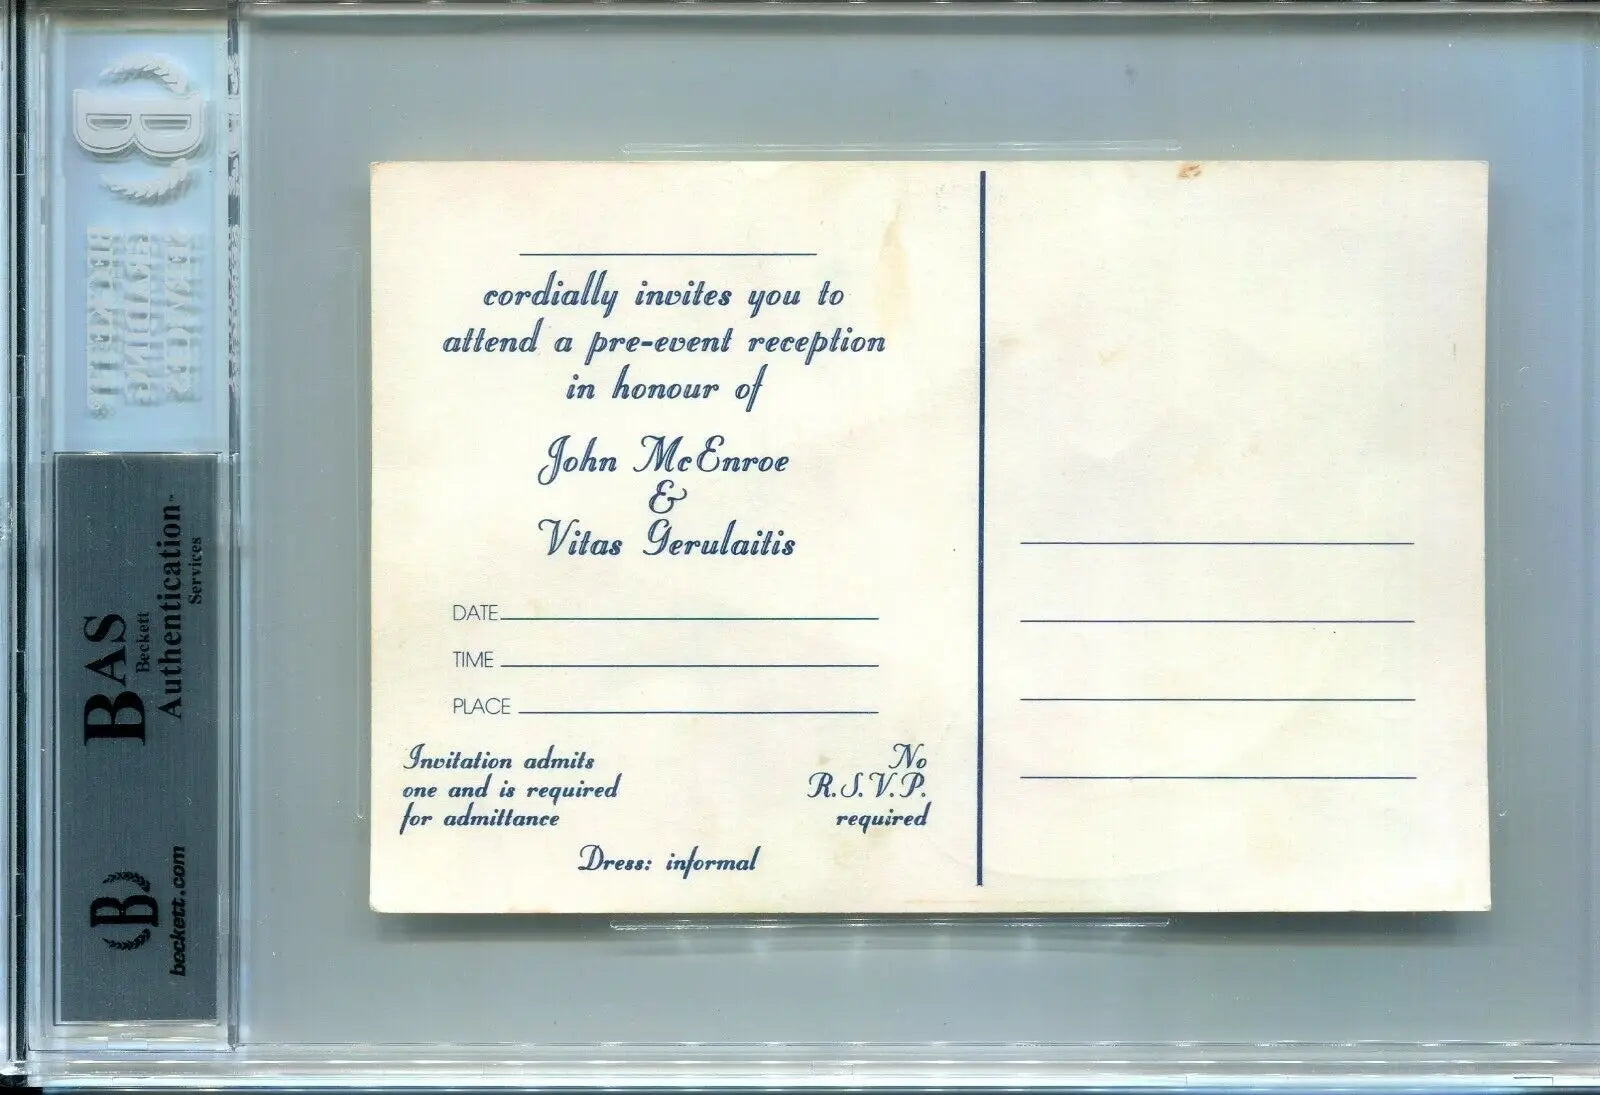 cordially invites you to
attend a pre-event reception
in honour of
John McEnroe
&
Vitas Gerulaitis
DATE
TIME
PLACE
Invitation admits
one and is required
for admittance
No
R.S.V.P.
required
Dress: informal
BAS
Beckett
Authentication™
Services
B
beckett.com
B
BECKETT®
GRADING
SERVICES